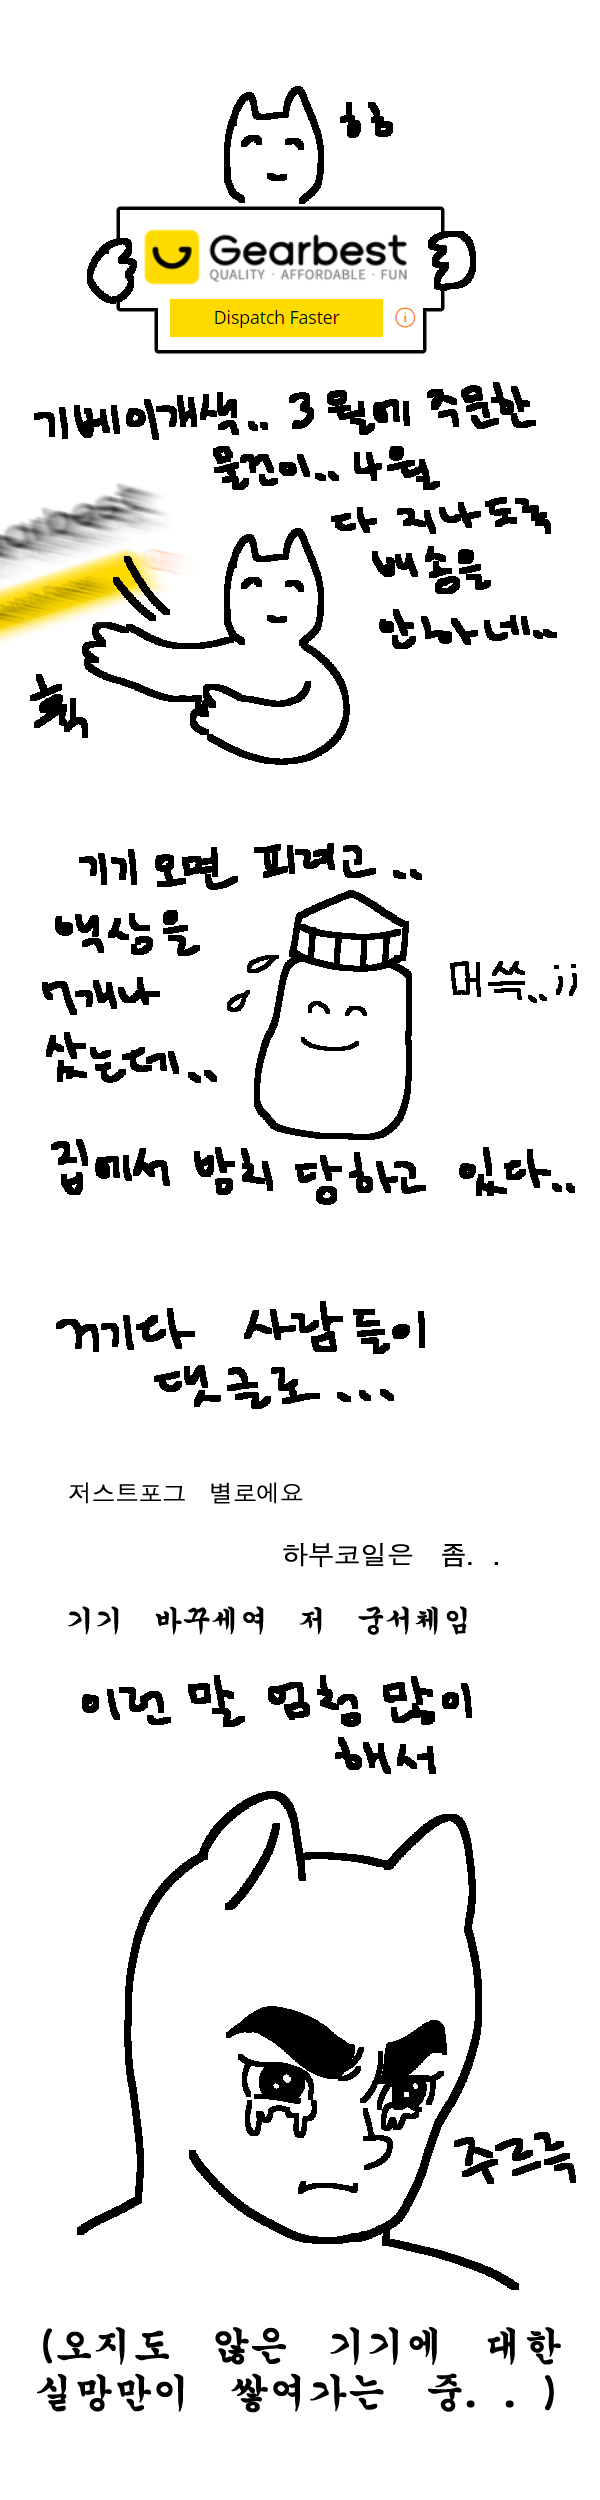 하하
Gearbest
QUALITY · AFFORDABLE · FUN
Dispatch Faster
기베이개색.. 3월에 주문한
물건이.. 4월
다 지나도록
배송을
안하네..
earbest
휙
기기 오면 피려고..
액상을
7개나
샀는데..
머쓱..;;
집에서 방치 당하고 있다..
거기다 사람들이
댓글로...
저스트포그 별로에요
하부코일은 좀. .
기기 바꾸세여 저 궁서체임
이런 말 엄청 많이
해서
주르륵
(오지도 않은 기기에 대한
실망만이 쌓여가는 중. . )